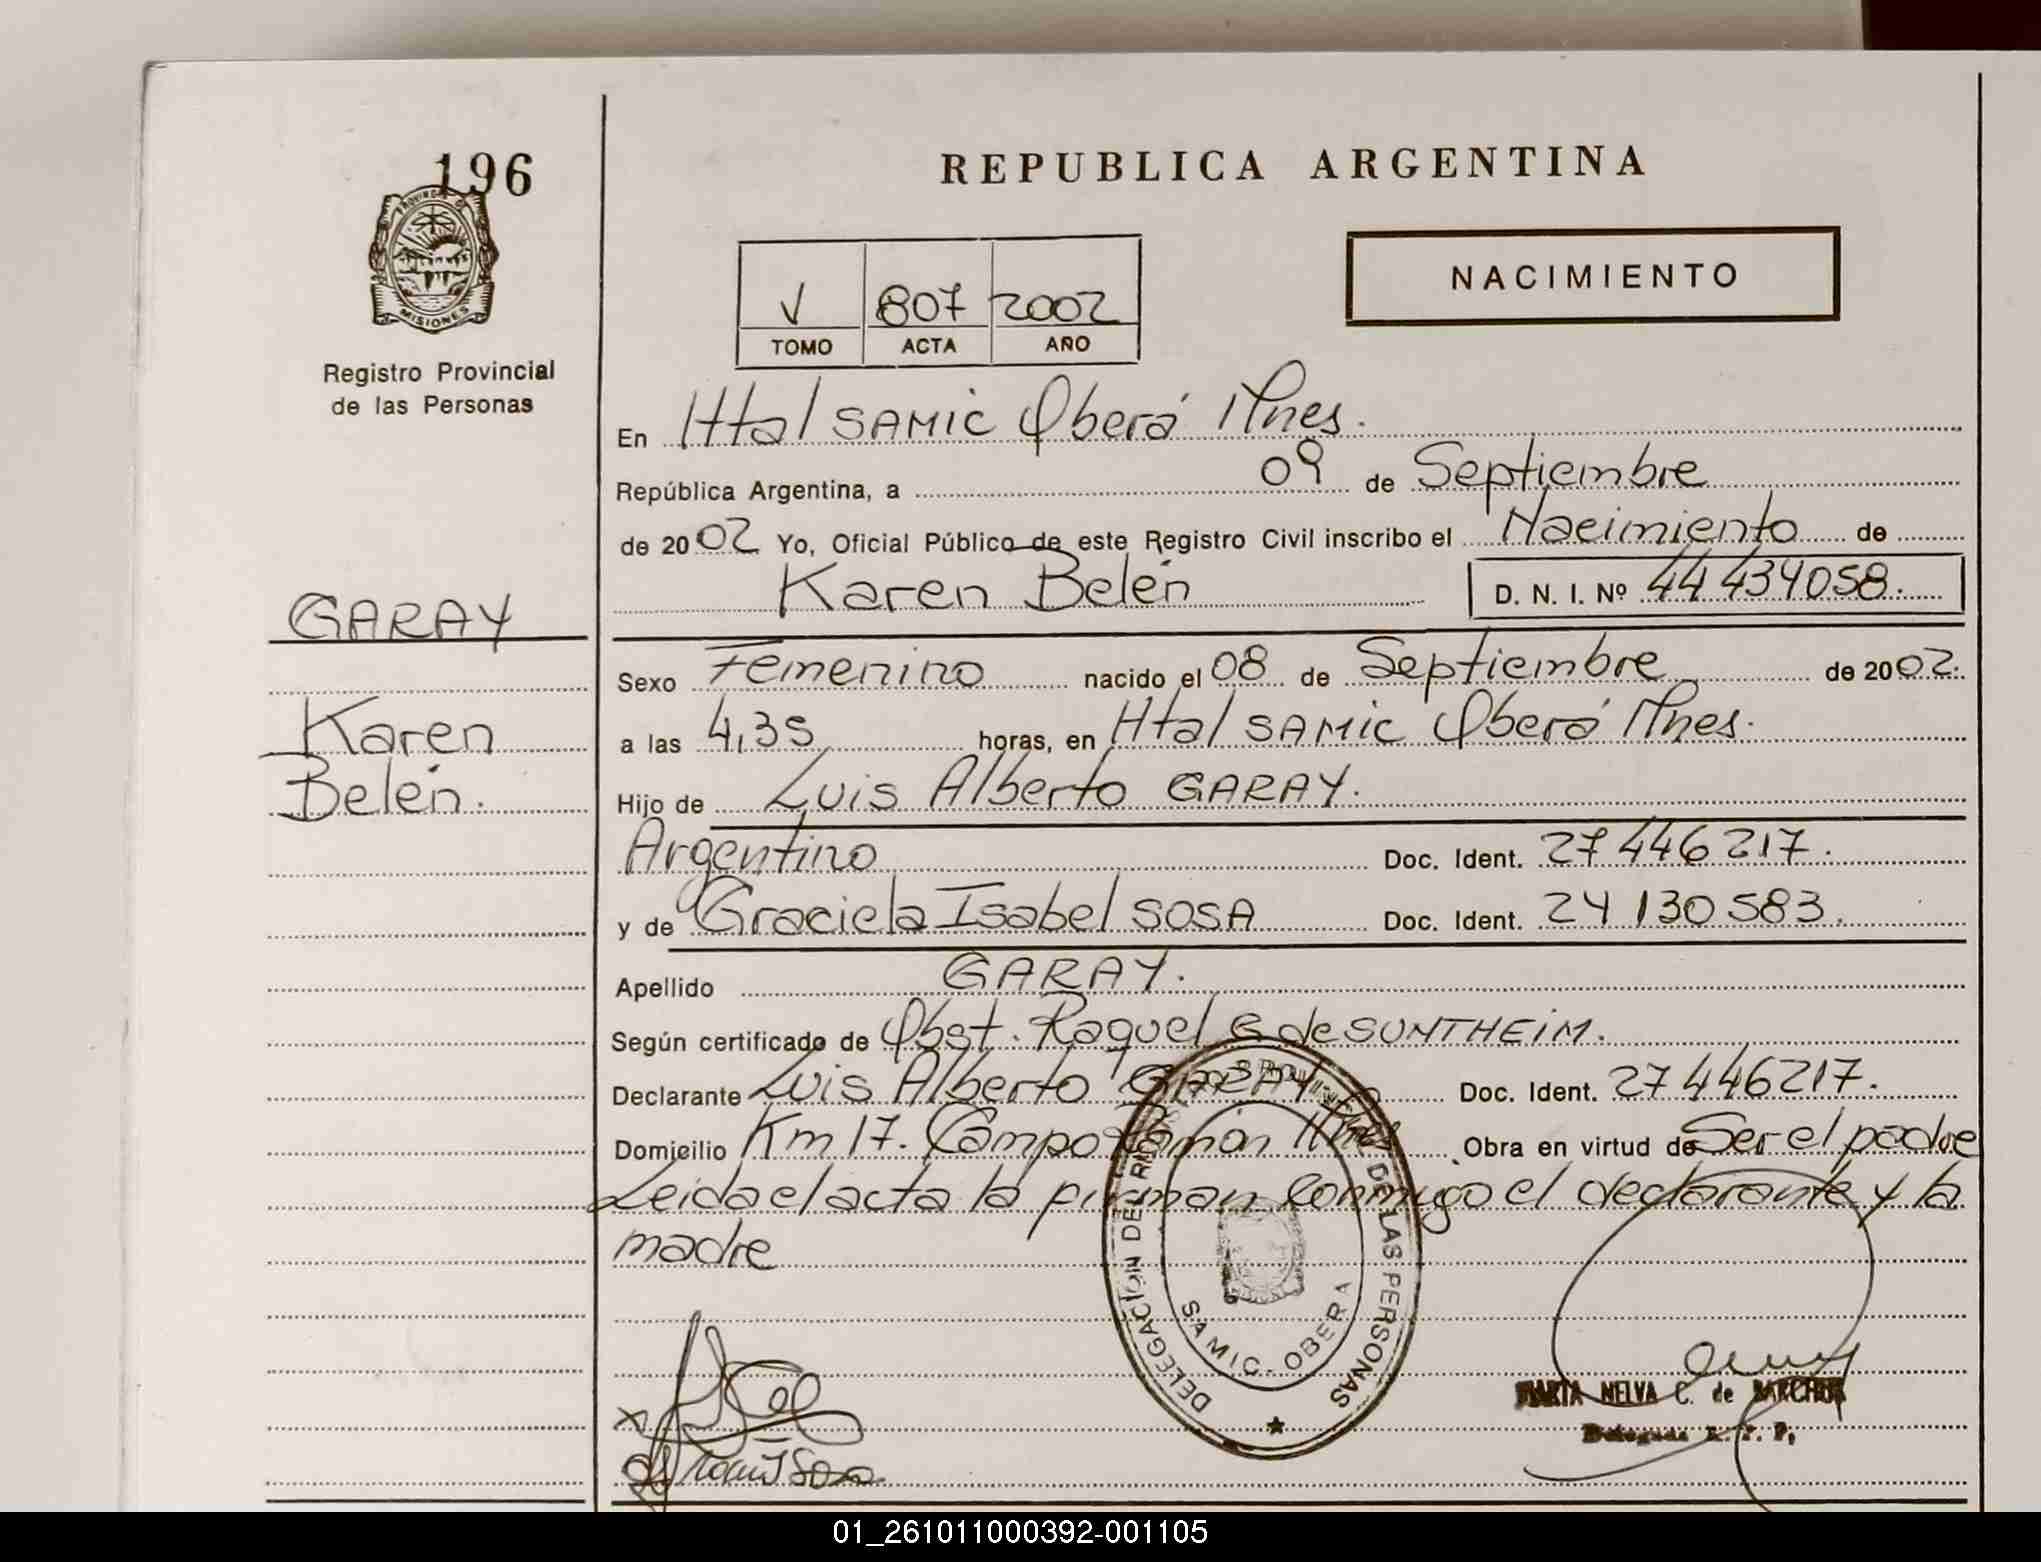 196
PROVINCIA DE
MISIONES
Registro Provincial
de las Personas
GARAY
Karen
Belén.
REPUBLICA ARGENTINA
V 807 2002
TOMO ACTA AÑO
NACIMIENTO
En Htal SAMIC Oberá Mnes.
República Argentina, a 09 de Septiembre
de 2002 Yo, Oficial Público de este Registro Civil inscribo el Nacimiento de
Karen Belén D. N. I. Nº 44 434058.
Sexo Femenino nacido el 08 de Septiembre de 2002.
a las 4,35 horas, en Htal SAMIC Oberá Mnes.
Hijo de Luis Alberto GARAY.
Argentino Doc. Ident. 27 446 217.
y de Graciela Isabel SOSA Doc. Ident. 24 130 583.
Apellido GARAY.
Según certificado de Obst. Raquel G de SUNTHEIM.
Declarante Luis Alberto GARAY Doc. Ident. 27 446217.
Domicilio Km 17. Campo Ramón Mnes Obra en virtud de Ser el padre
Leida el acta la firman conmigo el declarante y la
madre
DELEGACIÓN DEL REGISTRO PROVINCIAL DE LAS PERSONAS
SAMIC - OBERA
MARTA NELVA C. de
Delegada R. P. P.
Sosa
01_261011000392-001105